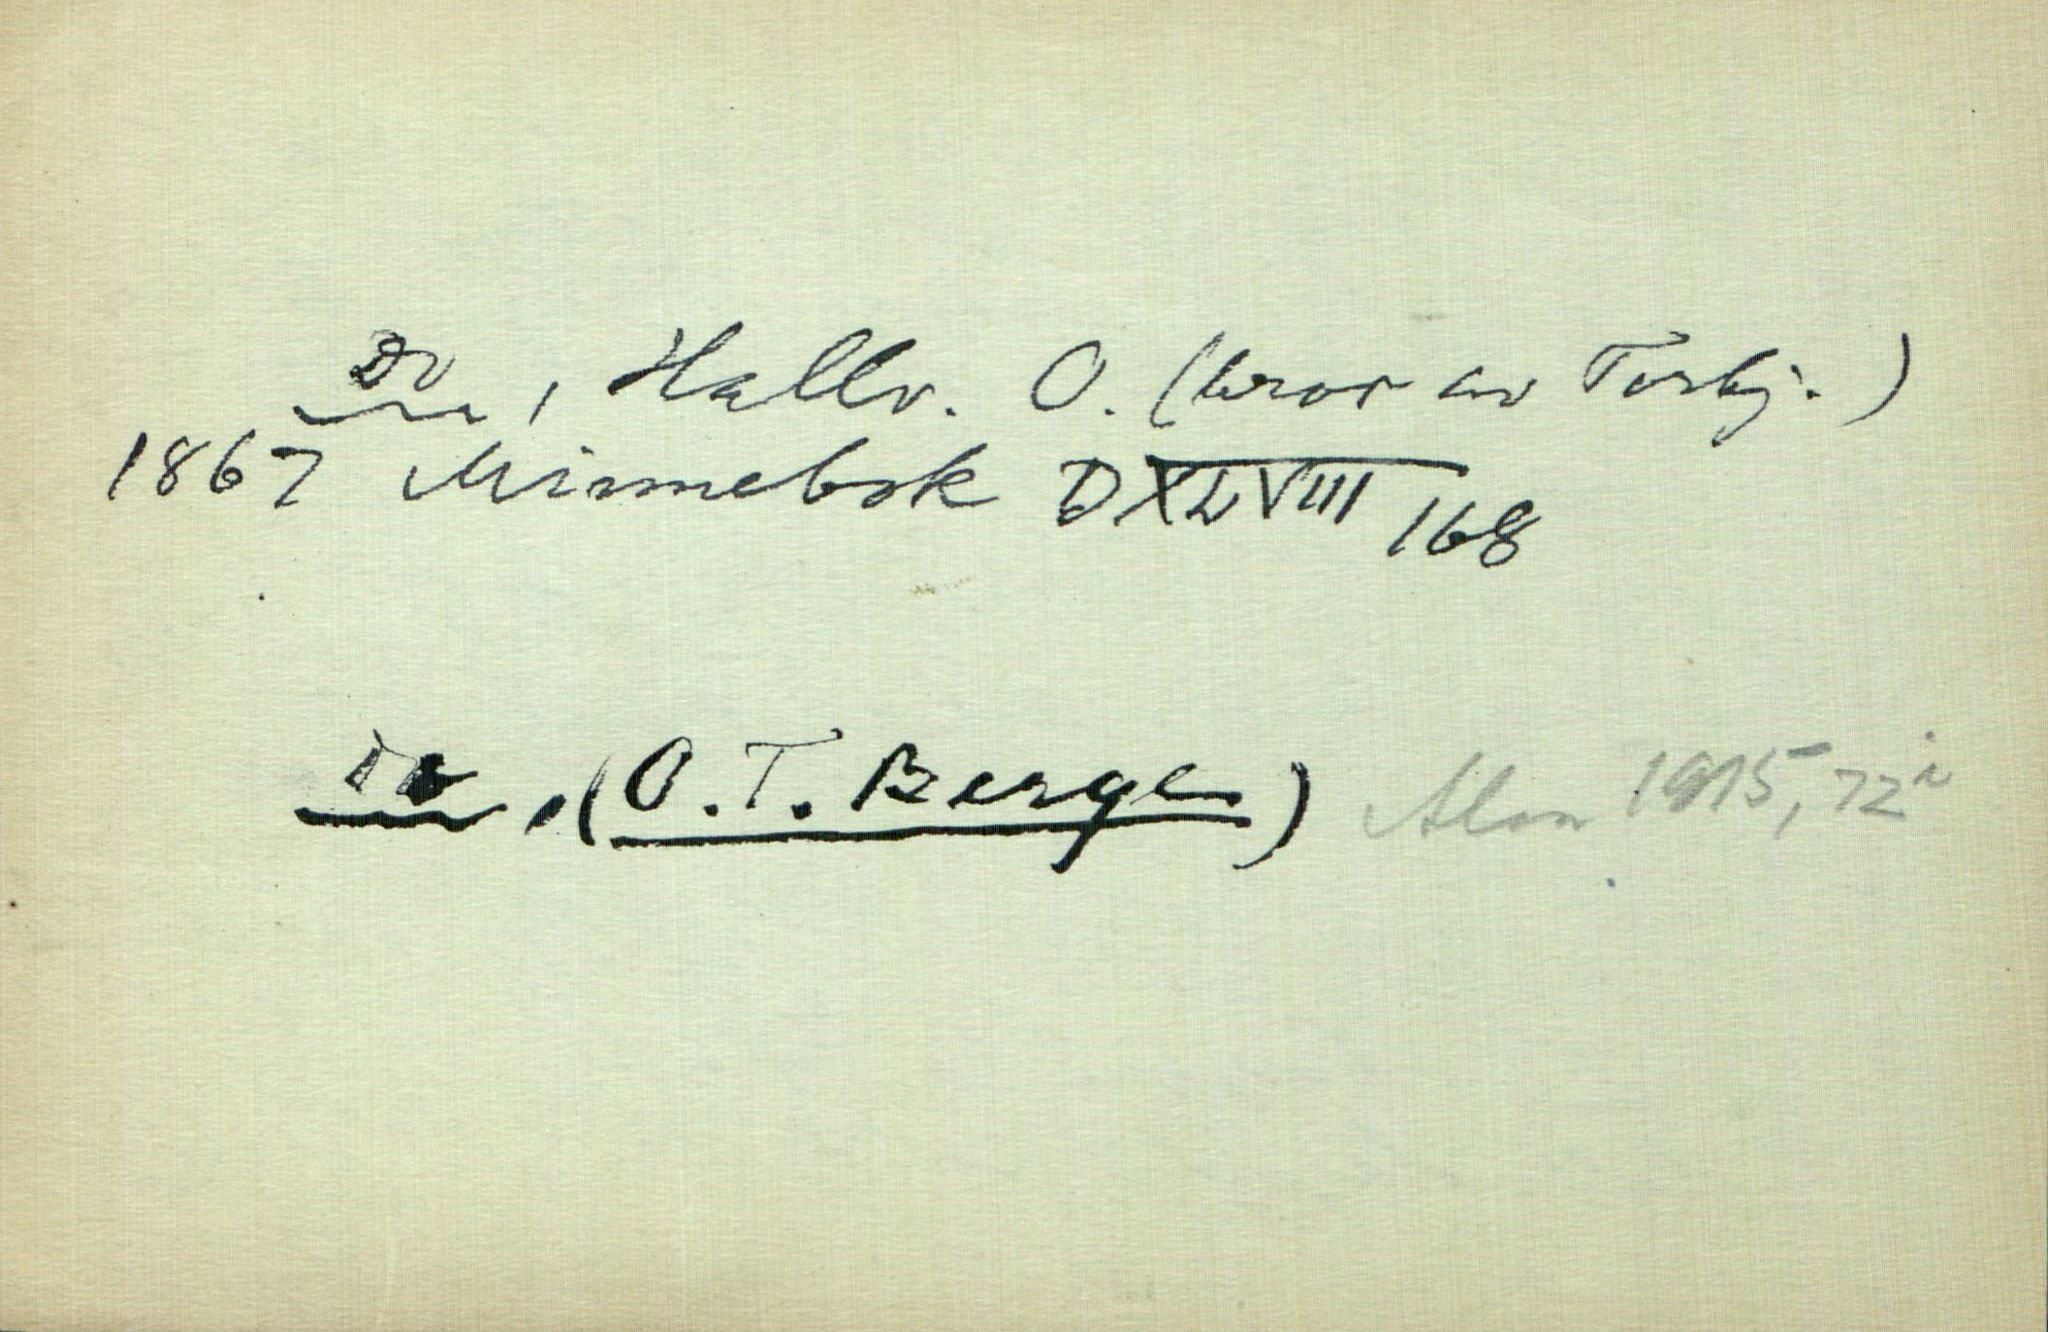 Do, Hallv. O. (bror av Torbj.)
1867 Minnebok D XLVIII 168
Do, (O. T. Berge) 1915, 72